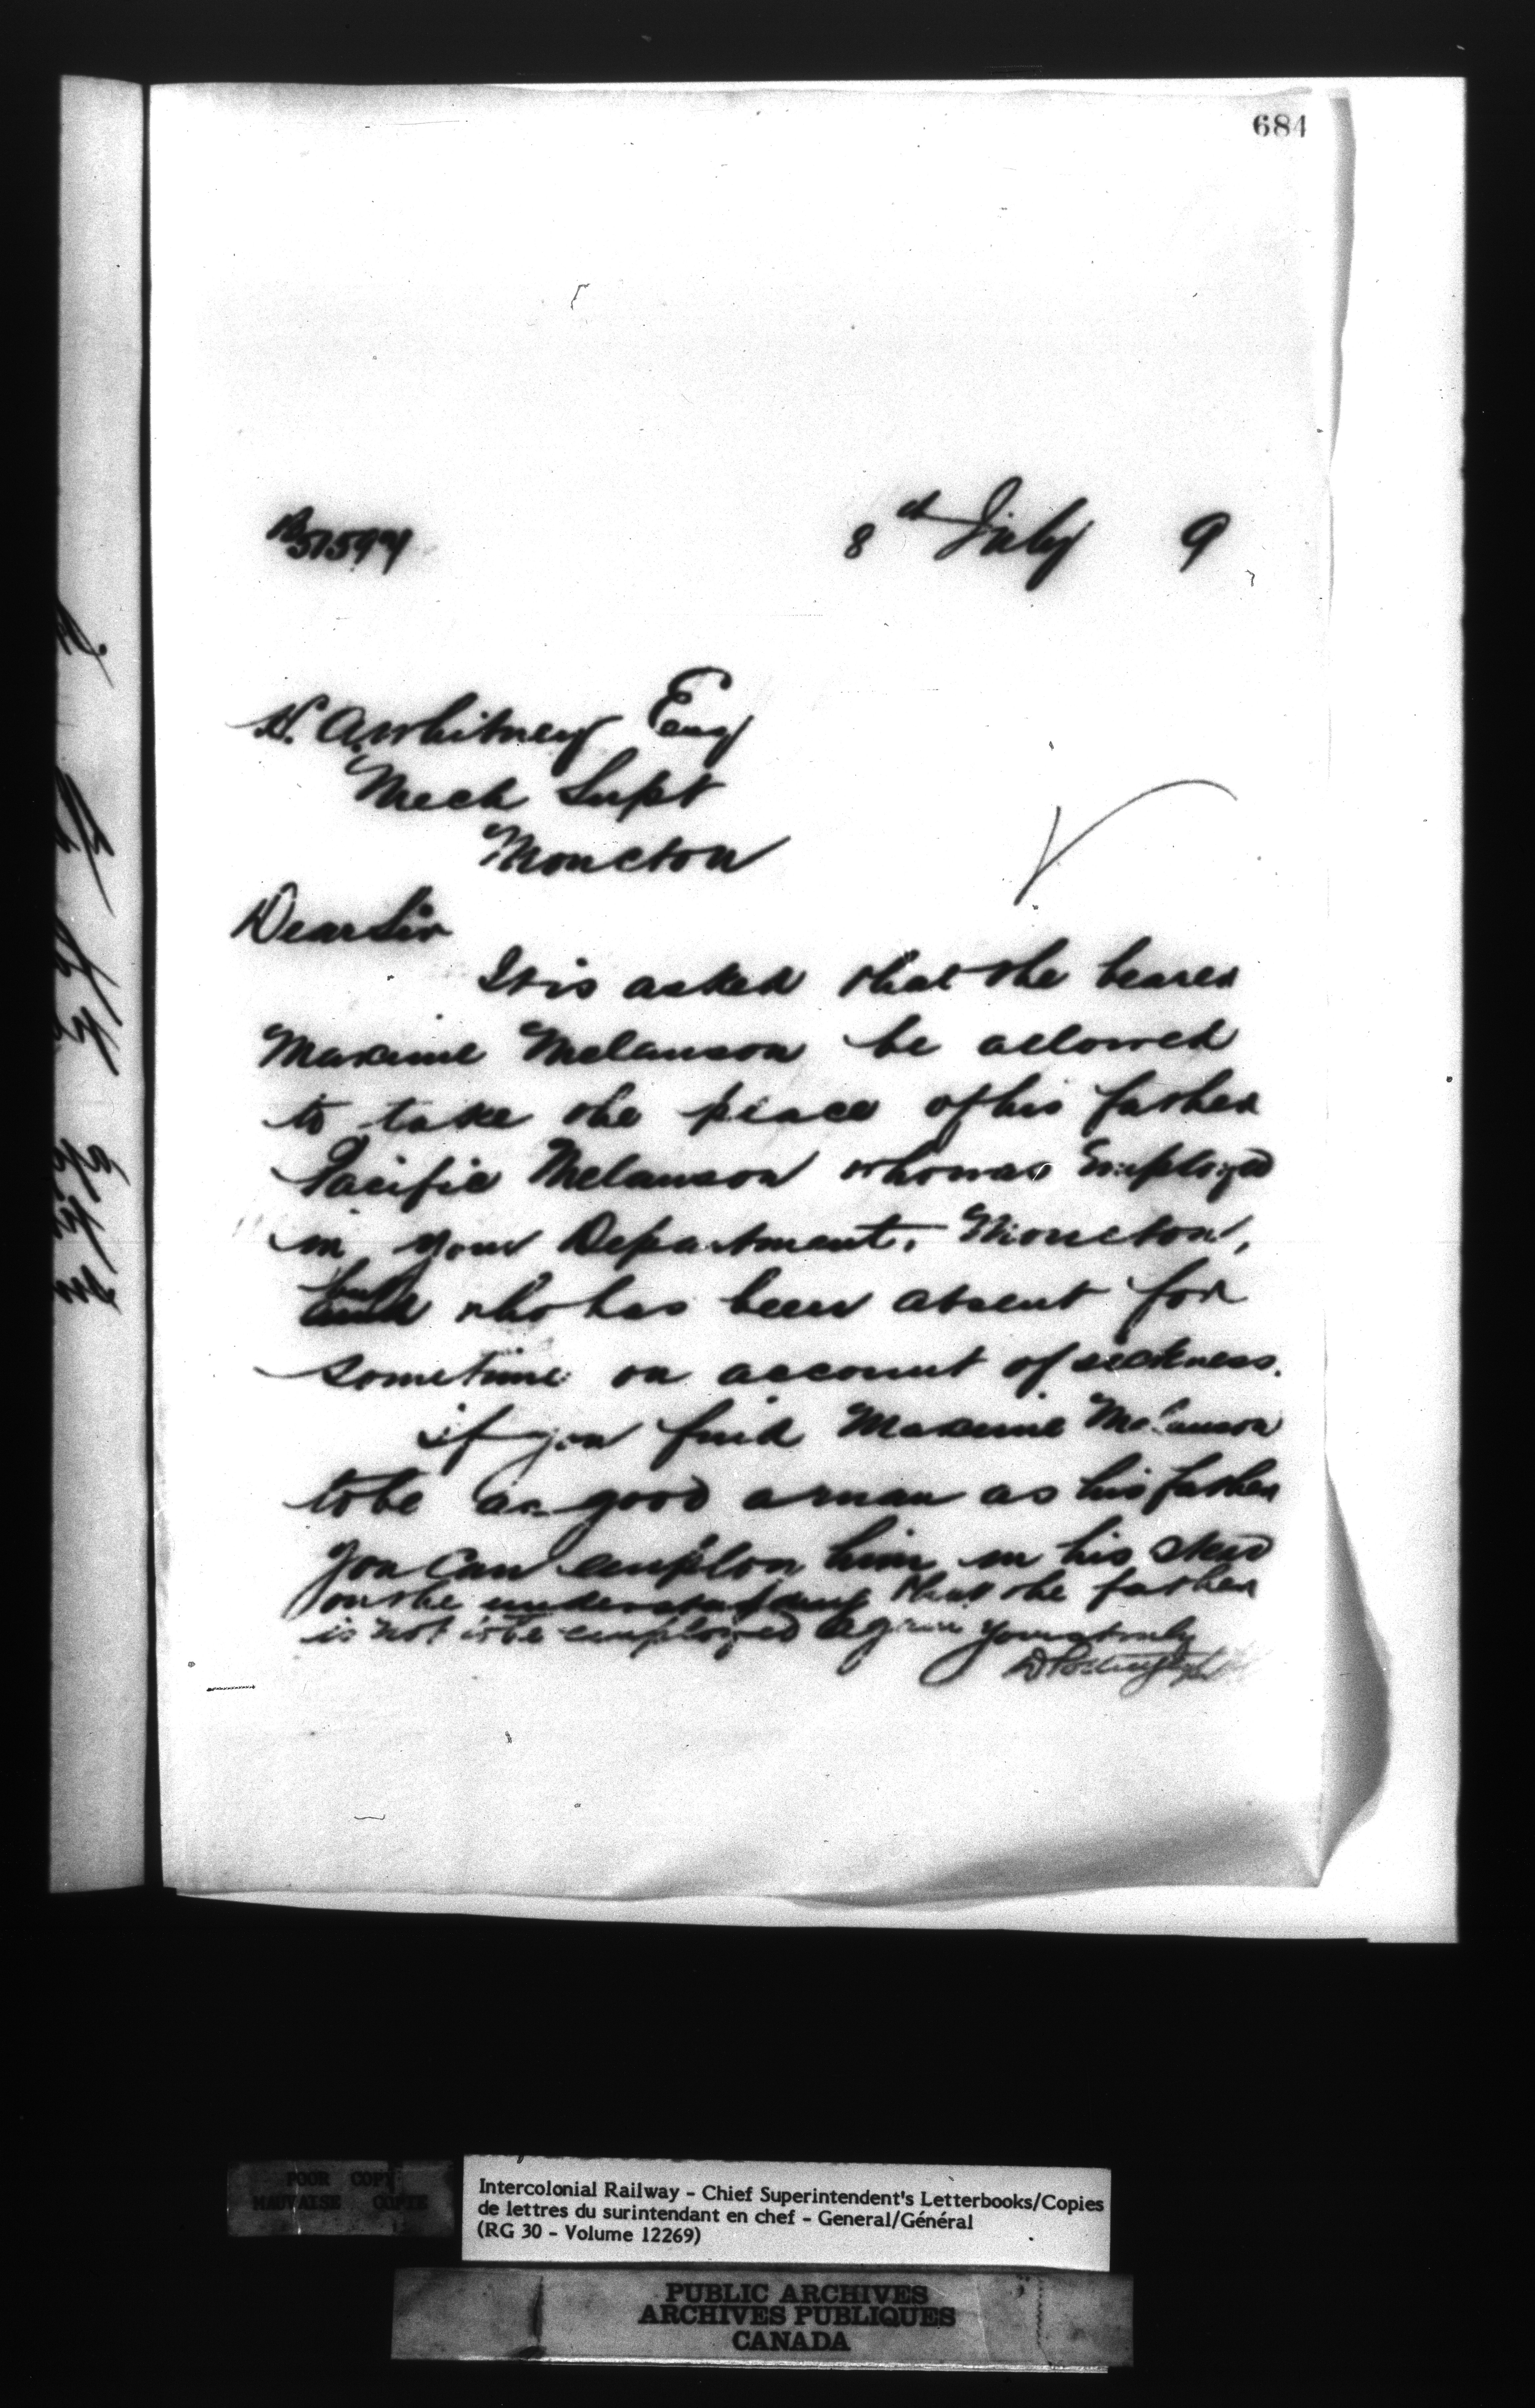 684
8th July 9
H. A. Whitney Esq
Mech Supt
Moncton
Dear Sir
It is asked that the bearer
Maxime Melanson be allowed
to take the place of his father
Pacifie Melanson who was Employed
in your Department, Moncton,
but who has been absent for
sometime on account of sickness.
if you find Maxime Melanson
to be as good a man as his father
you can employ him in his stead
on the understanding that the father
is not to be employed again yours truly
D Pottinger
POOR COPY
MAUVAISE COPIE
Intercolonial Railway - Chief Superintendent's Letterbooks/Copies
de lettres du surintendant en chef - General/Général
(RG 30 - Volume 12269)
PUBLIC ARCHIVES
ARCHIVES PUBLIQUES
CANADA